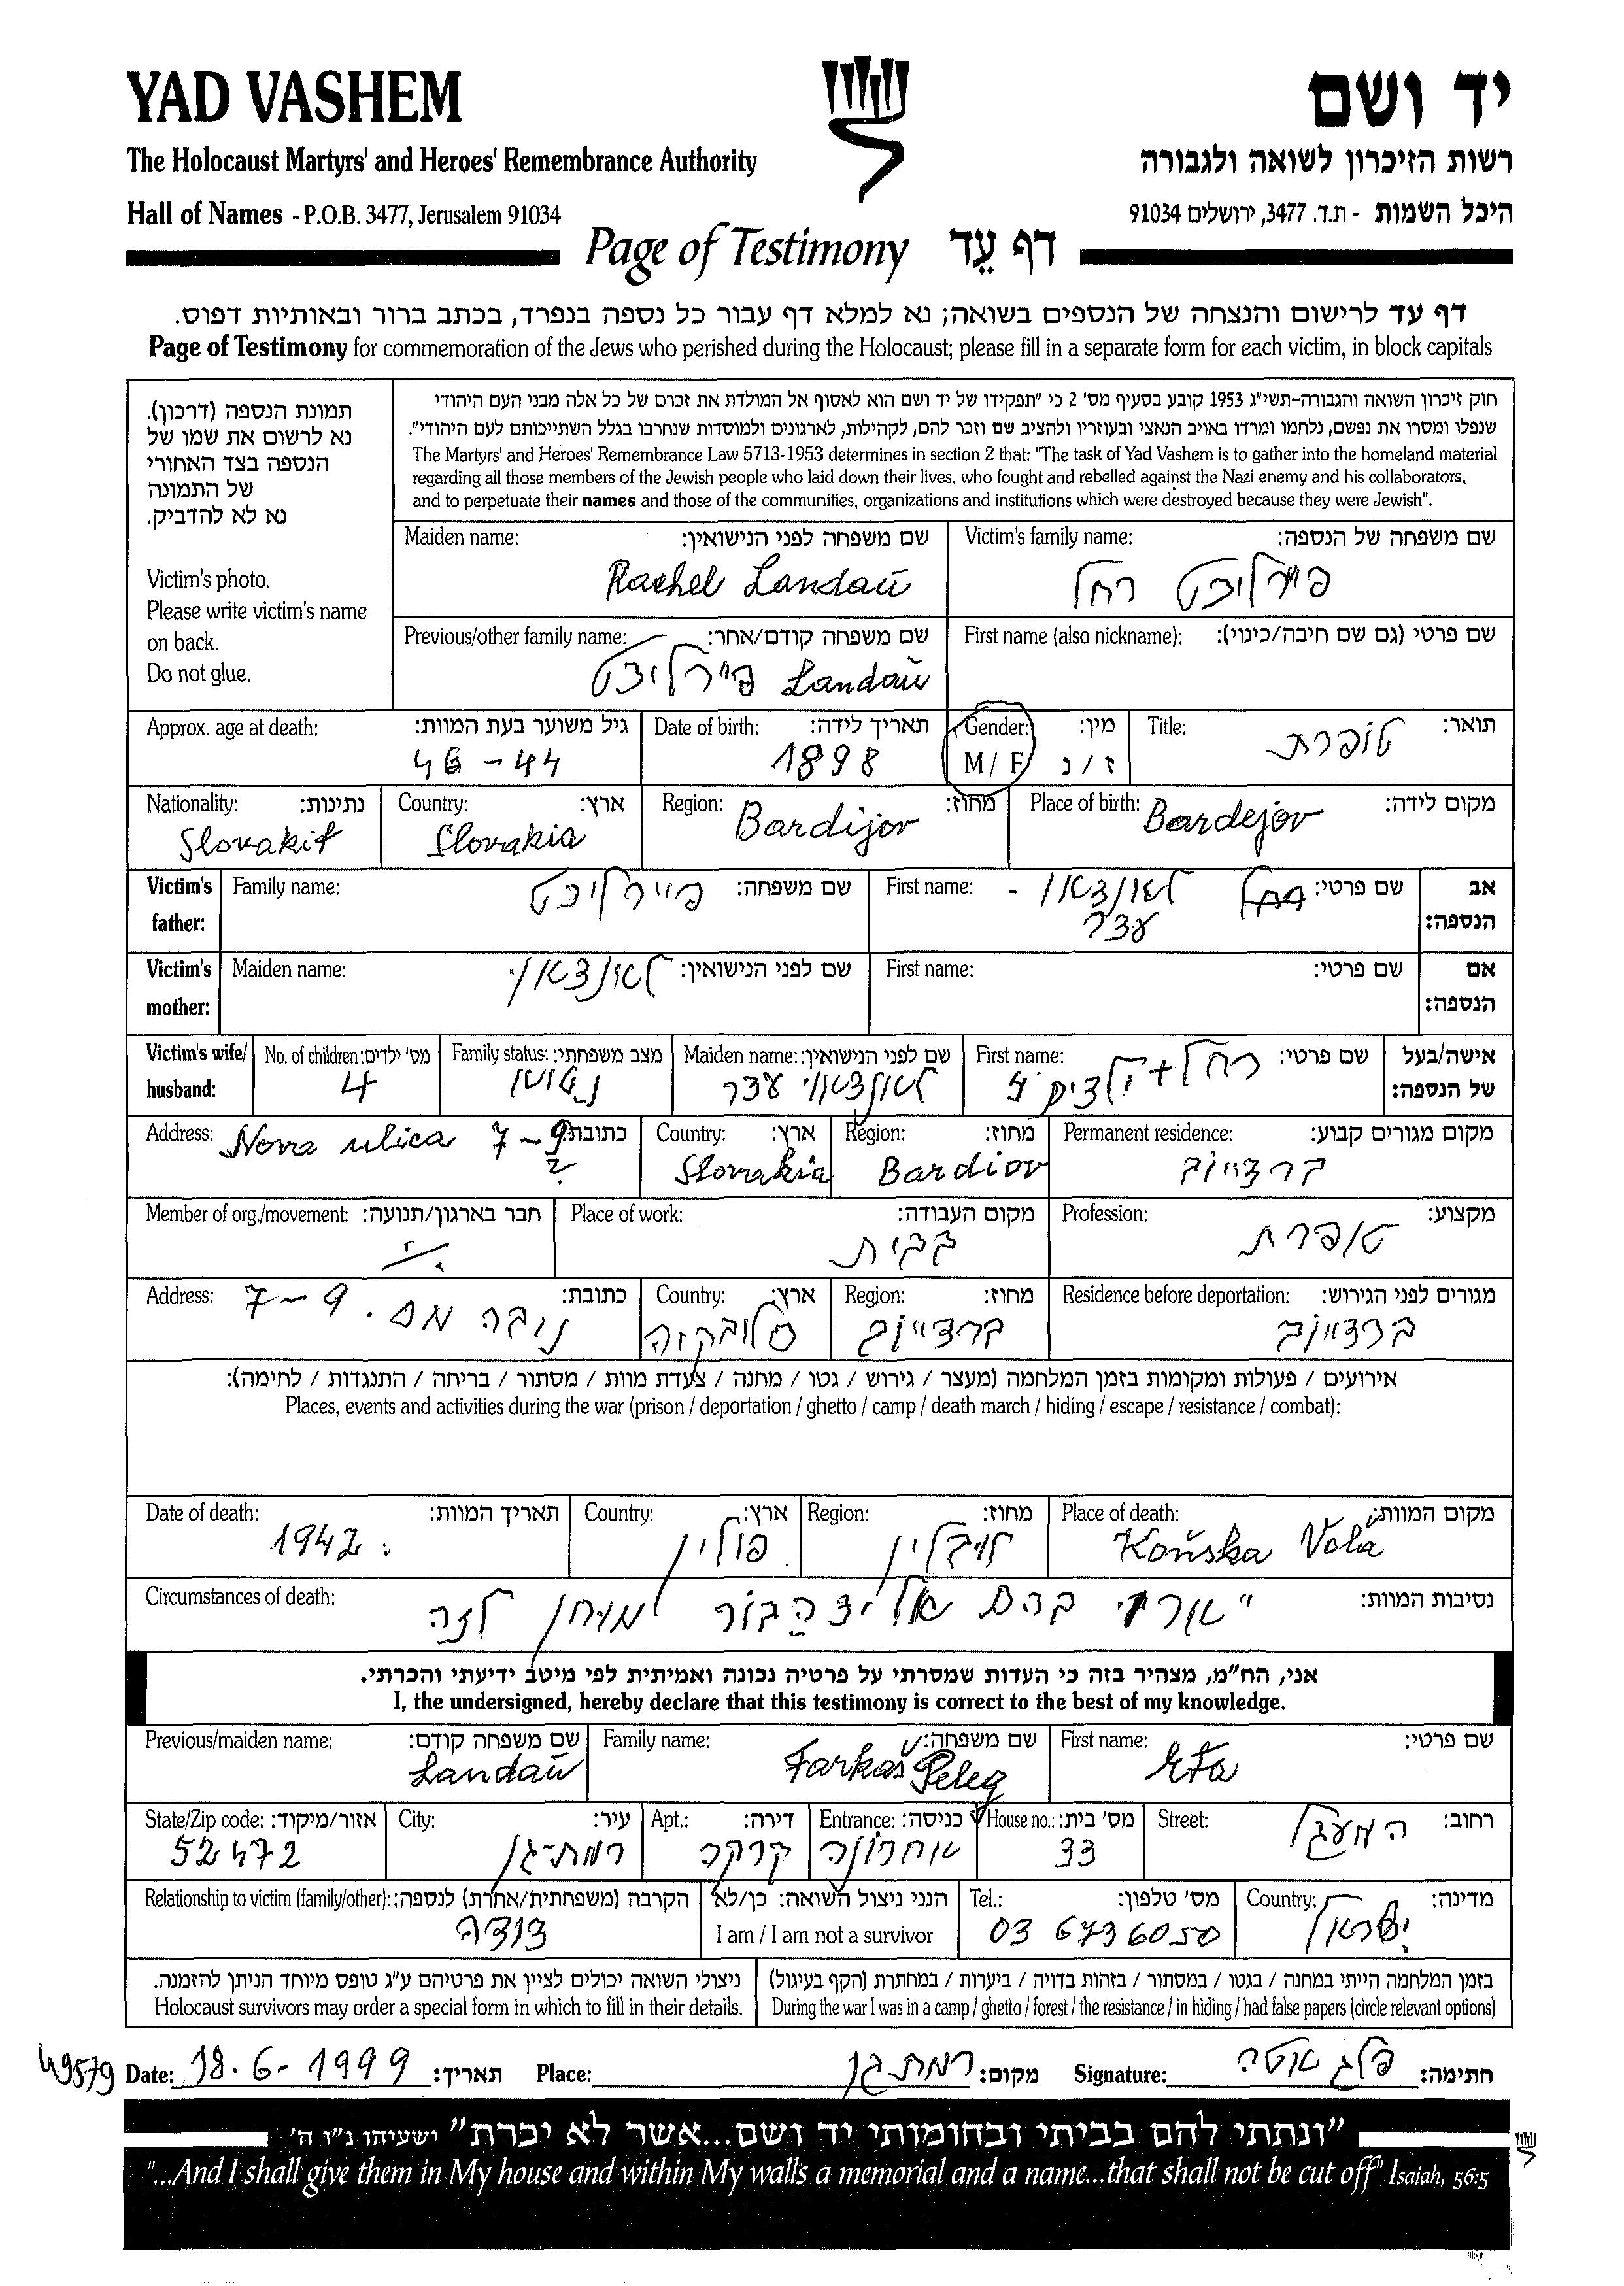 YAD VASHEM
יד ושם
The Holocaust Martyrs' and Heroes' Remembrance Authority
רשות הזיכרון לשואה ולגבורה
Hall of Names - P.O.B. 3477, Jerusalem 91034
היכל השמות - ת.ד. 3477, ירושלים 91034
Page of Testimony דף עֵד
דף עד לרישום והנצחה של הנספים בשואה; נא למלא דף עבור כל נספה בנפרד, בכתב ברור ובאותיות דפוס.
Page of Testimony for commemoration of the Jews who perished during the Holocaust; please fill in a separate form for each victim, in block capitals
תמונת הנספה (דרכון).
נא לרשום את שמו של
הנספה בצד האחורי
של התמונה
נא לא להדביק.
Victim's photo.
Please write victim's name
on back.
Do not glue.
חוק זיכרון השואה והגבורה-תשי"ג 1953 קובע בסעיף מס' 2 כי "תפקידו של יד ושם הוא לאסוף אל המולדת את זכרם של כל אלה מבני העם היהודי
שנפלו ומסרו את נפשם, נלחמו ומרדו באויב הנאצי ובעוזריו ולהציב שם וזכר להם, לקהילות, לארגונים ולמוסדות שנחרבו בגלל השתייכותם לעם היהודי".
The Martyrs' and Heroes' Remembrance Law 5713-1953 determines in section 2 that: "The task of Yad Vashem is to gather into the homeland material
regarding all those members of the Jewish people who laid down their lives, who fought and rebelled against the Nazi enemy and his collaborators,
and to perpetuate their names and those of the communities, organizations and institutions which were destroyed because they were Jewish".
Maiden name: שם משפחה לפני הנישואין: Victim's family name: שם משפחה של הנספה:
Rachel Landau פיירליכט רחל
Previous/other family name: שם משפחה קודם/אחר: First name (also nickname): שם פרטי (גם שם חיבה/כינוי):
פיירליכט Landau
Approx. age at death: גיל משוער בעת המוות: Date of birth: תאריך לידה: Gender: מין: Title: תואר:
46 - 44 1898 M / F ז / נ תופרת
Nationality: נתינות: Country: ארץ: Region: מחוז: Place of birth: מקום לידה:
Slovakit Slovakia Bardijov Bardejov
Victim's father: Family name: שם משפחה: פיירליכט First name: שם פרטי: לאנדאו - אב הנספה:
Victim's mother: Maiden name: שם לפני הנישואין: לאנדאו First name: שם פרטי: אם הנספה:
Victim's wife/ husband: No. of children: מס' ילדים: Family status: מצב משפחתי: Maiden name: שם לפני הנישואין: First name: שם פרטי: אישה/בעל של הנספה:
4 נשוי לאנדאו רחל + ילדים 4
Address: כתובת: Country: ארץ: Region: מחוז: Permanent residence: מקום מגורים קבוע:
Nova ulica 7 - 9 ? Slovakia Bardiov ברדיוב
Member of org./movement: חבר בארגון/תנועה: Place of work: מקום העבודה: Profession: מקצוע:
בבית תופרת
Address: כתובת: Country: ארץ: Region: מחוז: Residence before deportation: מגורים לפני הגירוש:
נובה מס. 9 - 7 סלובקיה ברדיוב ברדיוב
אירועים / פעולות ומקומות בזמן המלחמה (מעצר / גירוש / גטו / מחנה / צעדת מוות / מסתור / בריחה / התנגדות / לחימה):
Places, events and activities during the war (prison / deportation / ghetto / camp / death march / hiding / escape / resistance / combat):
Date of death: תאריך המוות: Country: ארץ: Region: מחוז: Place of death: מקום המוות:
1942 פולין לובלין Końska Vola
Circumstances of death: נסיבות המוות:
בהם אל הבור מוכן לזה
אני, הח"מ, מצהיר בזה כי העדות שמסרתי על פרטיה נכונה ואמיתית לפי מיטב ידיעתי והכרתי.
I, the undersigned, hereby declare that this testimony is correct to the best of my knowledge.
Previous/maiden name: שם משפחה קודם: Family name: שם משפחה: First name: שם פרטי:
Landau Farkaš Peleg Eta
State/Zip code: אזור/מיקוד: City: עיר: Apt.: דירה: Entrance: כניסה: House no.: מס' בית: Street: רחוב:
52472 רמת-גן קרקע אחרונה 33 המעגל
Relationship to victim (family/other): הקרבה (משפחתית/אחרת) לנספה: הנני ניצול השואה: כן/לא Tel.: מס' טלפון: Country: מדינה:
דודה I am / I am not a survivor 03 6736050 ישראל
ניצולי השואה יכולים לציין את פרטיהם ע"ג טופס מיוחד הניתן להזמנה.
Holocaust survivors may order a special form in which to fill in their details.
בזמן המלחמה הייתי במחנה / בגטו / במסתור / בזהות בדויה / ביערות / במחתרת (הקף בעיגול)
During the war I was in a camp / ghetto / forest / the resistance / in hiding / had false papers (circle relevant options)
49579 Date: 18.6-1999 תאריך: Place: רמת גן מקום: Signature: פלג אטה חתימה:
"ונתתי להם בביתי ובחומותי יד ושם...אשר לא יכרת" ישעיהו נ"ו ה'
"...And I shall give them in My house and within My walls a memorial and a name...that shall not be cut off" Isaiah, 56:5